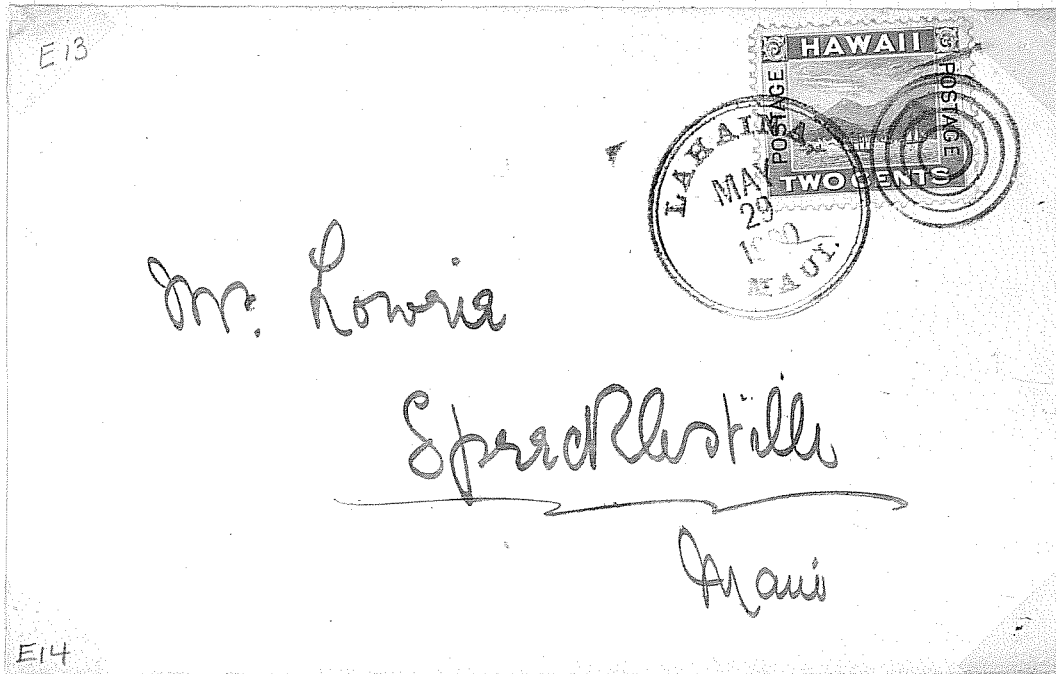 E13
HAWAII
POSTAGE
POSTAGE
TWO CENTS
LAHAINA.
MAY
29
1900
MAUI.
Mr. Lowrie
Sprecklesville
Maui
E14